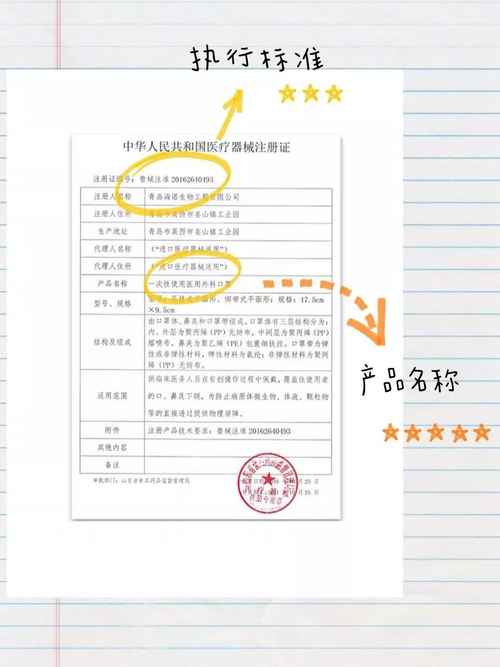 执行标准
中华人民共和国医疗器械注册证
注册证编号：鲁械注准20162640493
注册人名称 青岛海诺生物工程有限公司
注册人住所 青岛市莱西市姜山镇工业园
生产地址 青岛市莱西市姜山镇工业园
代理人名称 （“进口医疗器械适用”）
代理人住所 （“进口医疗器械适用”）
产品名称 一次性使用医用外科口罩
型号、规格 绑带式平面形；规格：17.5cm
×9.5cm
结构及组成 由口罩体、鼻夹和口罩带组成。口罩体有三层结构分为：
内、外层为聚丙烯（PP）无纺布，中间层为聚丙烯（PP）
熔喷布。鼻夹为聚乙烯（PE）包裹细铁丝。口罩带为弹
性或非弹性材料，弹性材料为氨纶；非弹性材料为聚丙
烯（PP）无纺布。
适用范围 供临床医务人员在有创操作过程中佩戴，覆盖住使用者
的口、鼻及下颌，为防止病原体微生物、体液、颗粒物
等的直接透过提供物理屏障。
附件 注册产品技术要求：鲁械注准20162640493
其他内容
备注
审批部门：山东省食品药品监督管理局
产品名称